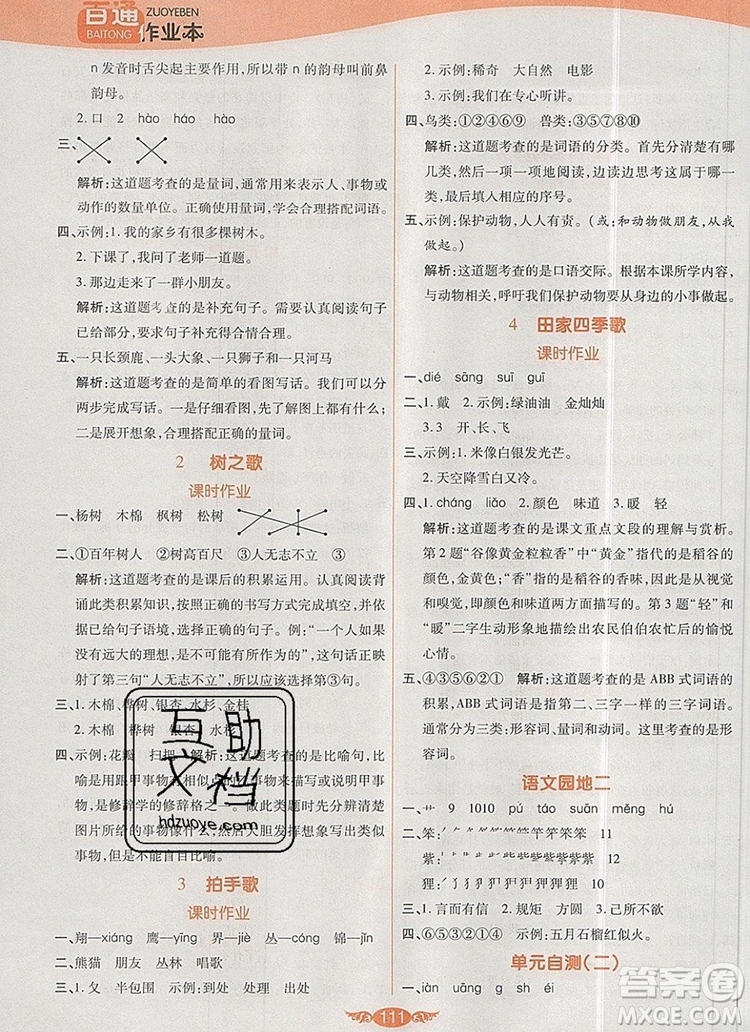 百通
BAITONG
ZUOYEBEN
作业本
n 发音时舌尖起主要作用,所以带 n 的韵母叫前鼻
韵母。
2. 口 2 hào háo hào
三、
解析:这道题考查的是量词,通常用来表示人、事物或
动作的数量单位。正确使用量词,学会合理搭配词语。
四、示例:1. 我的家乡有很多棵树木。
2. 下课了,我问了老师一道题。
3. 那边走来了一群小朋友。
解析:这道题考查的是补充句子。认真阅读句子
已给部分,补充完整的句子要合情合理。
五、一只长颈鹿、一头大象、一只狮子、一只河马
解析:这道题考查的是简单的看图写话。我们可以分
两步完成写话。一是仔细看图,看看图上都有什么;
二是展开想象,合理搭配正确的量词。
2 树之歌
课时作业
一、杨树 木棉 枫树 松树
二、①百年树人 ②树高百尺 ③人无志不立 ③
解析:这道题考查的是课后的积累运用。认真阅读背
诵此类积累知识,按照正确的书写方式完成填空。根
据句子语境,选择正确的成语。例:“一个人如果
没有远大的理想,是不能有所成就的。”这句话正
好反映了第三句“人无志不立”,所以应该选第③句。
三、1. 木棉、桦树、银杏、水杉、金桂
2. 木棉 桦树 银杏 水杉
四、示例:花瓣 扫把 解析:这道题考查的是比喻句,
喻的是用跟甲事物有相似点的乙事物来描写或说明甲事
物,是修辞学的辞格之一。做此题时首先分辨清楚
图片上的事物像什么,然后大胆发挥想象写出类似
事物,但是不能盲目比喻。
3 拍手歌
课时作业
一、翔—xiáng 鹰—yīng 界—jiè 丛—cóng 锦—jǐn
二、熊猫 朋友 丛林 唱歌
三、1. 父 半包围 示例:爷 爸
2. 示例:稀奇 大自然 电影
3. 示例:我们在专心听讲。
四、鸟类:①②④⑥⑨ 兽类:③⑤⑦⑧⑩
解析:这道题考查的是词语的分类。首先分清楚有哪
几类,然后一项一项地阅读,边读边思考这一项属于
哪一类,最后填入相应的序号。
五、示例:保护动物,人人有责。(或:和动物做朋友,从我
做起。)
解析:这道题考查的是口语交际。根据本课所学内容,
与动物相处,呼吁我们保护动物从身边的小事做起。
4 田家四季歌
课时作业
一、dié sāng suī guī
二、1. 戴 2. 示例:绿油油 金灿灿
3. 3 开、长、飞
三、示例:1. 米像白银发光芒。
2. 天空降雪白又冷。
四、1. cháng liǎo 2. 颜色 味道 3. 暖 轻
解析:这道题考查的是课文重点文段的理解与赏析。
第 2 题“谷像黄金粒粒香”中“黄金”指代的是稻谷的
颜色,金黄色;“香”指的是稻谷的香味,因此是从视觉
和嗅觉,即颜色和味道两方面描写的。第 3 题“轻”和
“暖”二字生动形象地描绘出农民伯伯愉快的愉悦
心情。
五、④③⑤⑥②① 解析:这道题考查的是 ABB 式词语的
积累,ABB 式词语是指第二、三字一样的三字词语。
通常分为三类:形容词、量词、重叠词。这里考查的是形
容词。
语文园地二
一、艹 9 1010 pú táo suān měng hú
二、笨: 11
紫: 12
狸: 10
三、1. 言而有信 2. 规矩 方圆 3. 己所不欲
四、⑥⑤③④②① 示例:五月石榴红似火。
单元自测(二)
一、iàn uàng g sh éi
互助
文档
hdzuoye.com
111
答案圈
MXQE.COM